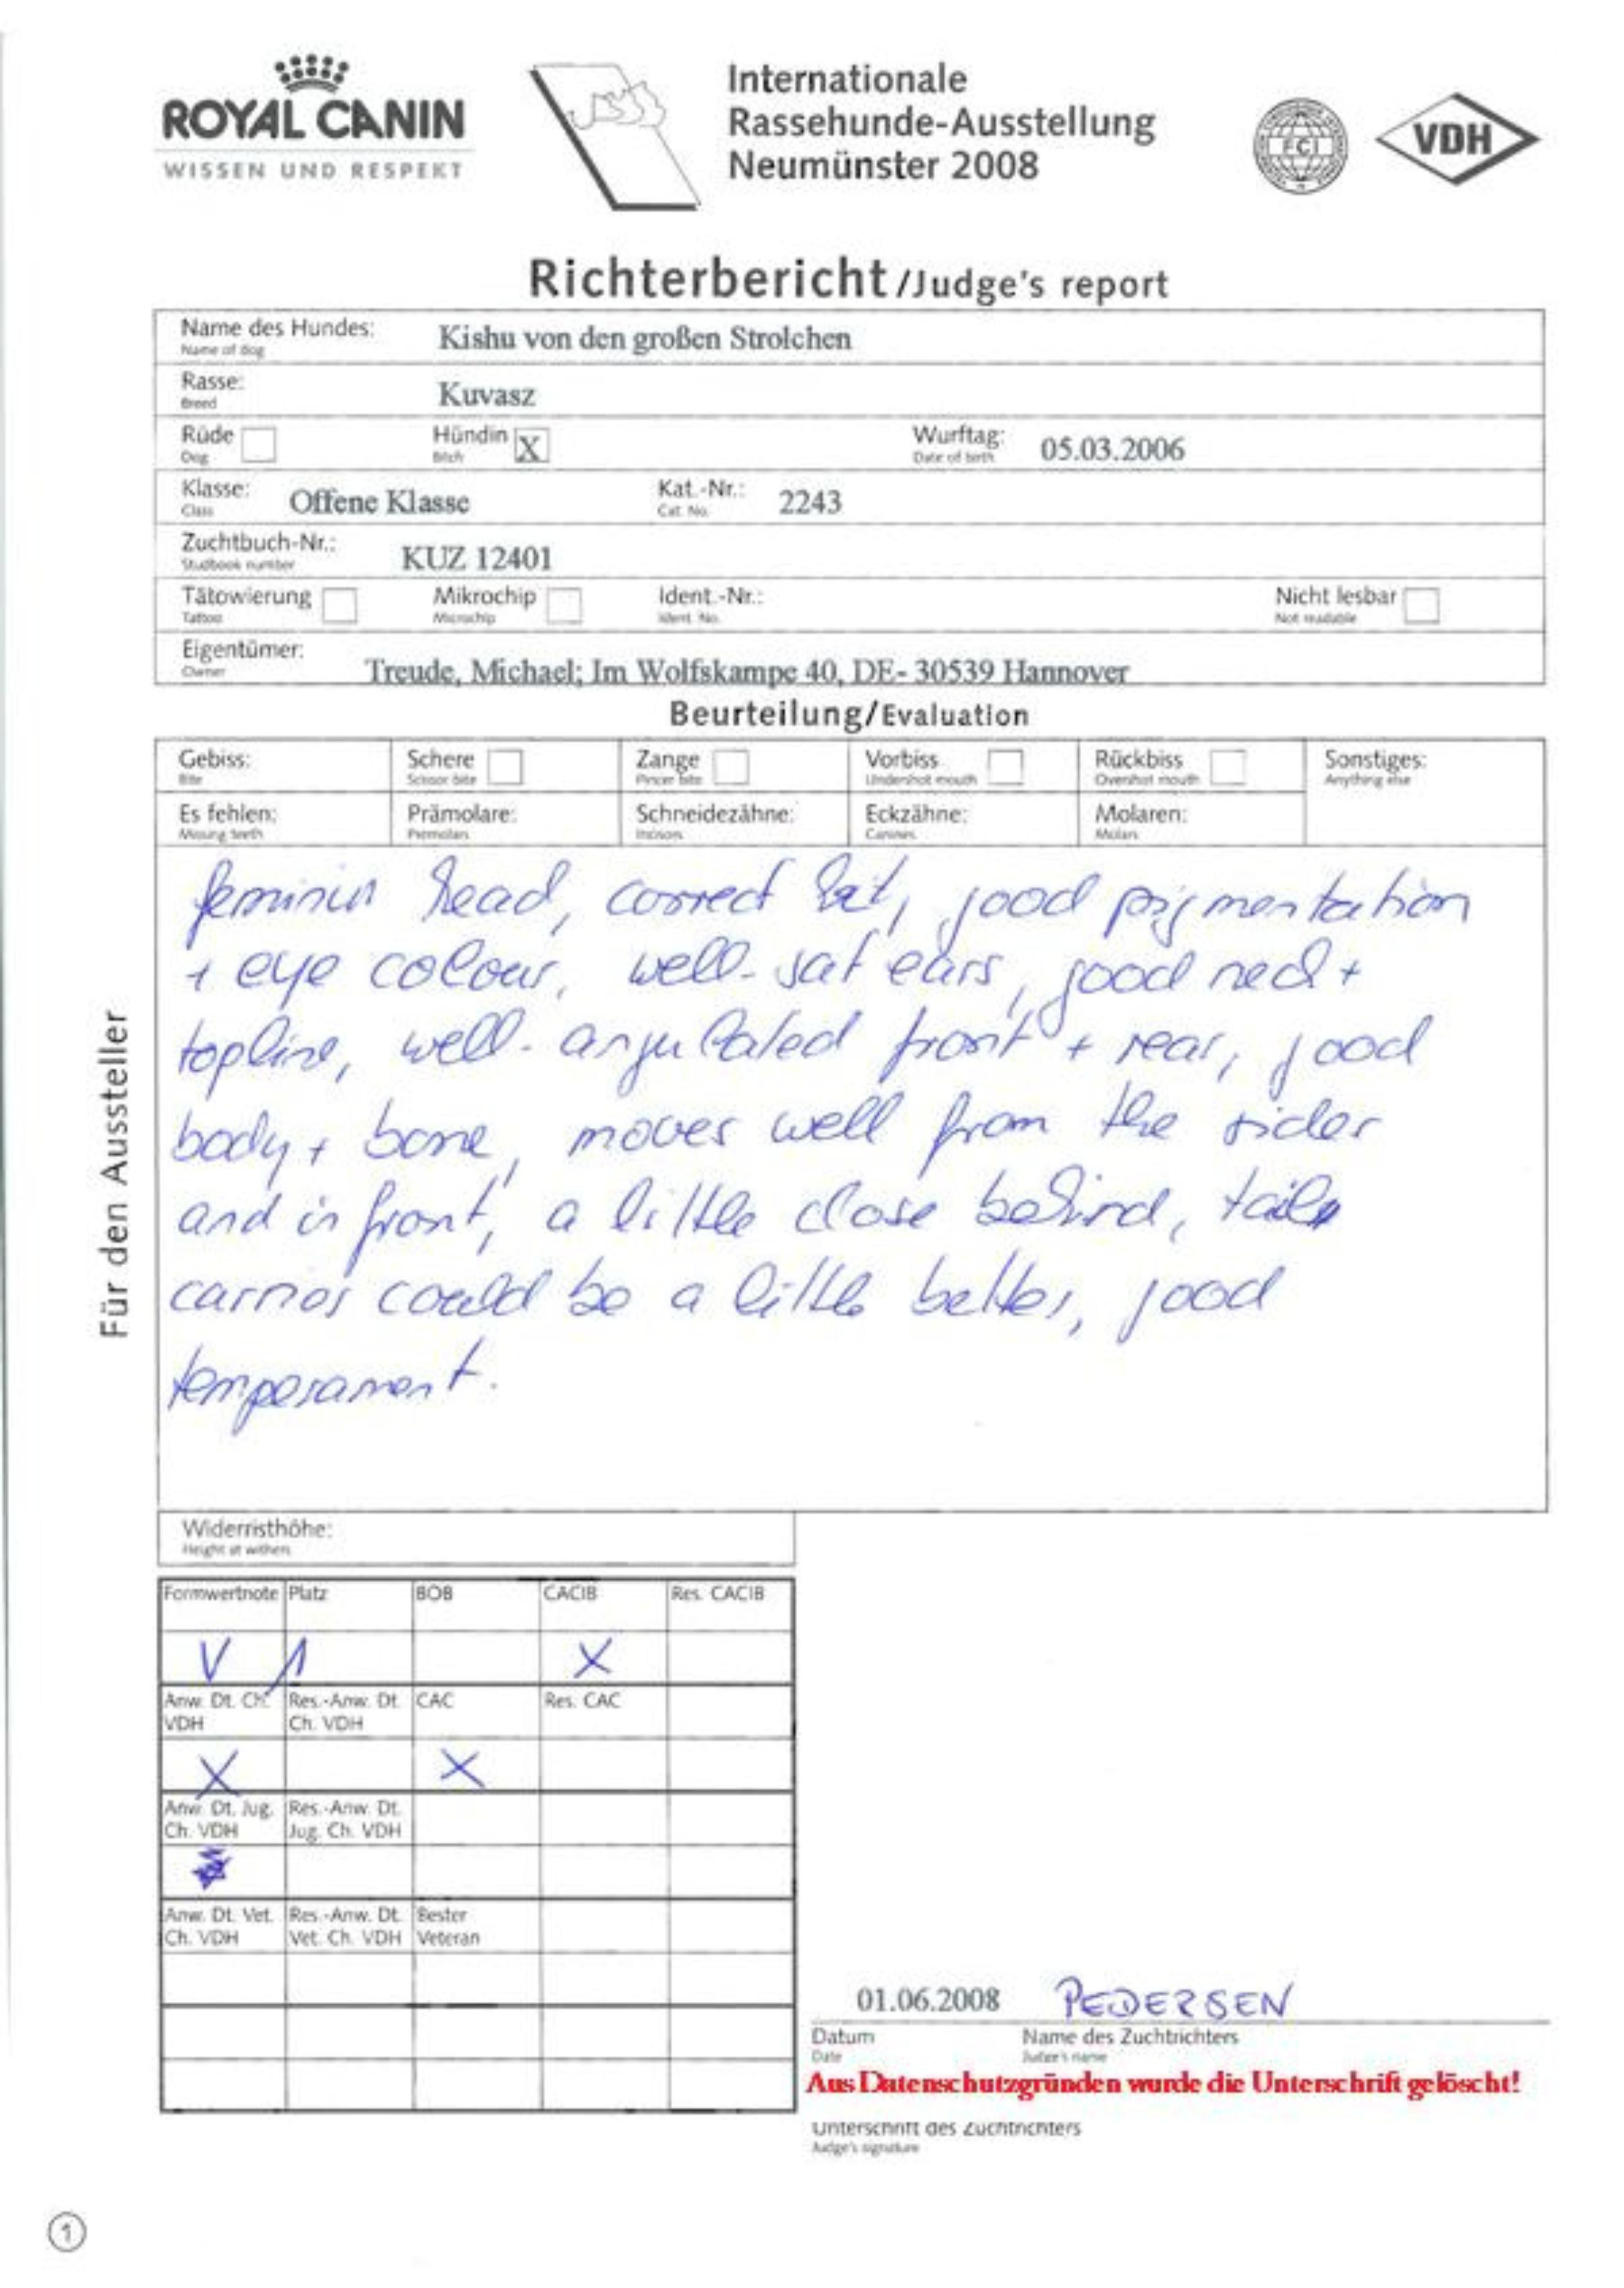 ROYAL CANIN
WISSEN UND RESPEKT
Internationale
Rassehunde-Ausstellung
Neumünster 2008
FCI
VDH
Richterbericht/Judge's report
Name des Hundes: Kishu von den großen Strolchen
Name of dog
Rasse: Kuvasz
Breed
Rüde Hündin X Wurftag: 05.03.2006
Dog Bitch Date of birth
Klasse: Offene Klasse Kat.-Nr.: 2243
Class Cat. No.
Zuchtbuch-Nr.: KUZ 12401
Studbook number
Tätowierung Mikrochip Ident.-Nr.: Nicht lesbar
Tattoo Microchip Ident. No. Not readable
Eigentümer: Treude, Michael; Im Wolfskampe 40, DE- 30539 Hannover
Owner
Beurteilung/Evaluation
Gebiss: Schere Zange Vorbiss Rückbiss Sonstiges:
Bite Scissor bite Pincer bite Undershot mouth Overshot mouth Anything else
Es fehlen: Prämolare: Schneidezähne: Eckzähne: Molaren:
Missing teeth Premolars Incisors Canines Molars
Für den Aussteller
feminin head, correct bit, good pigmentation
+ eye colour, well-sat ears, good neck +
topline, well-angulated front + rear, good
body + bone, moves well from the sider
and in front, a little close behind, tail
carries could be a little better, good
temperament.
Widerristhöhe:
Height at withers
Formwertnote Platz BOB CACIB Res. CACIB
V 1 X
Anw. Dt. Ch. VDH Res.-Anw. Dt. Ch. VDH CAC Res. CAC
X X
Anw. Dt. Jug. Ch. VDH Res.-Anw. Dt. Jug. Ch. VDH
Anw. Dt. Vet. Ch. VDH Res.-Anw. Dt. Vet. Ch. VDH Bester Veteran
01.06.2008 PEDERSEN
Datum Name des Zuchtrichters
Date Judge's name
Aus Datenschutzgründen wurde die Unterschrift gelöscht!
Unterschrift des Zuchtrichters
Judge's signature
1